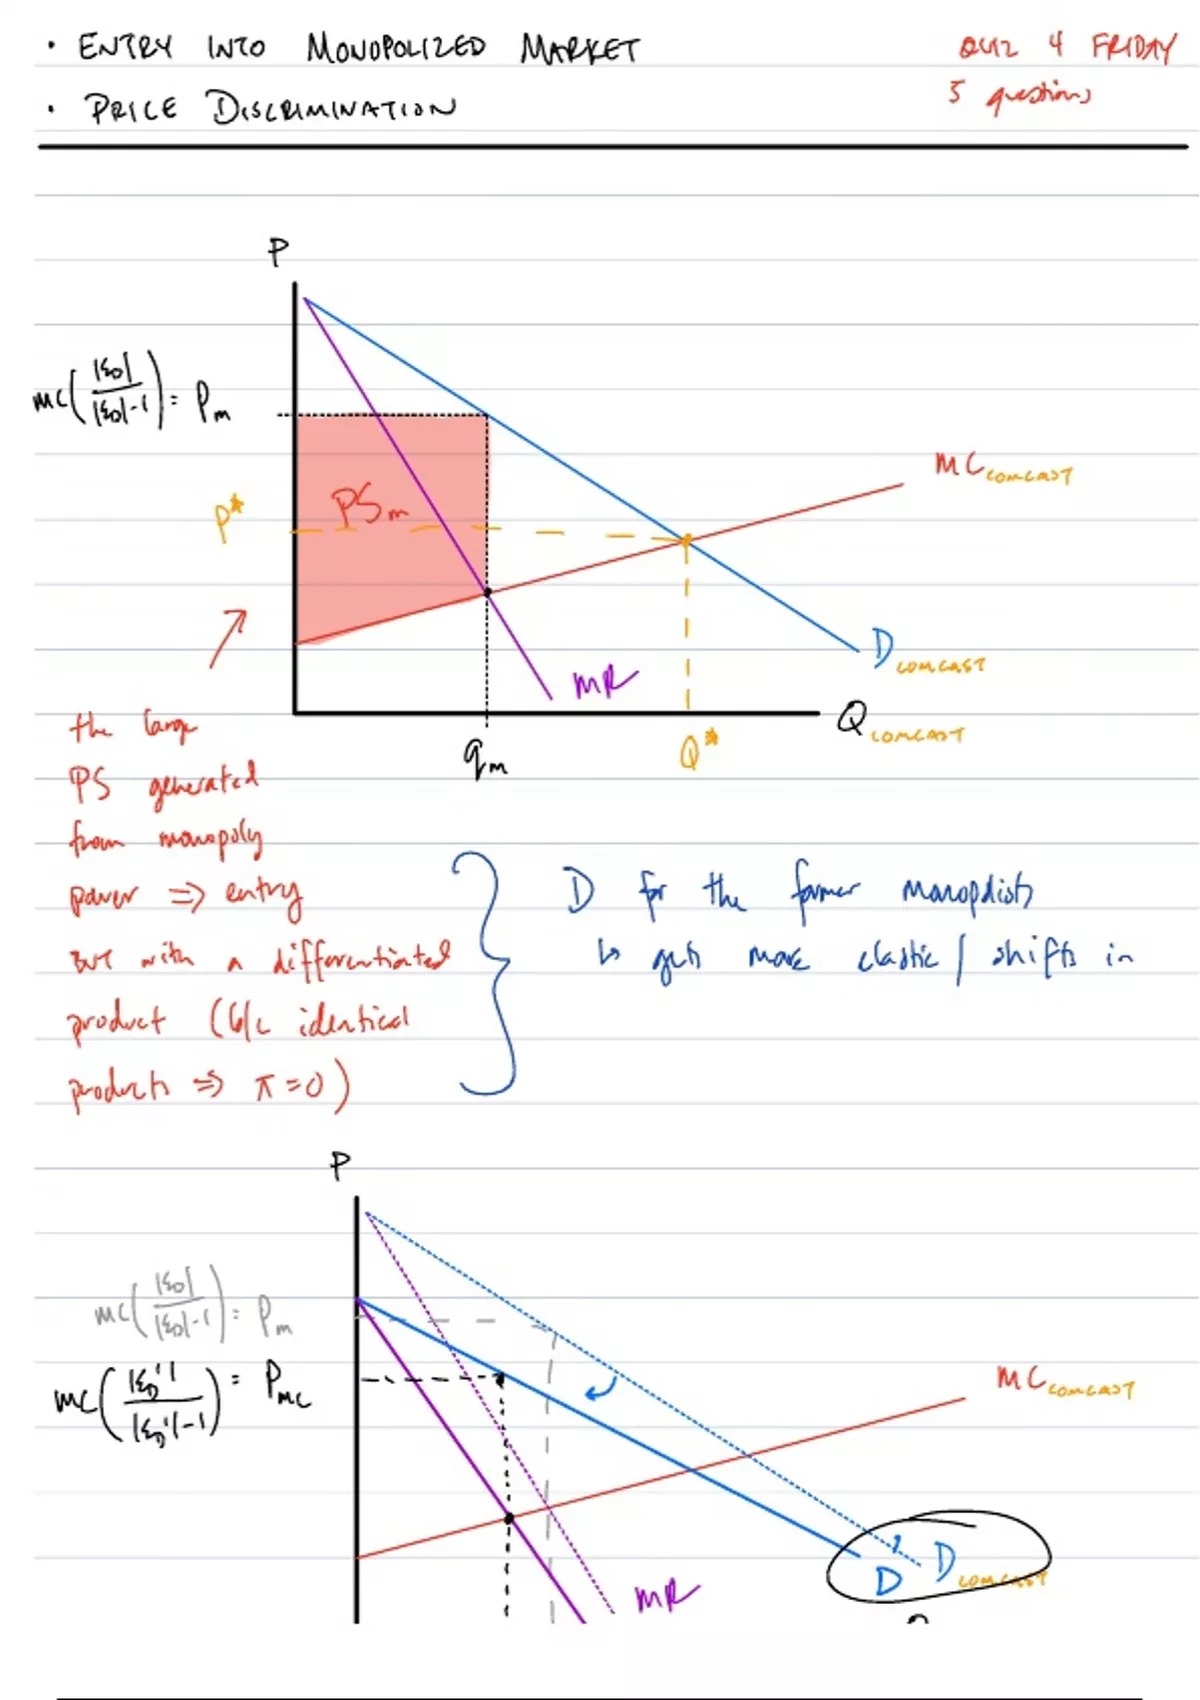 · ENTRY INTO MONOPOLIZED MARKET
QUIZ 4 FRIDAY
· PRICE DISCRIMINATION
5 questions
P
MC(|ε_D|/|ε_D|-1) = P_m
MC_COMCAST
P*
PS_m
D_COMCAST
MR
Q_COMCAST
q_m
Q*
the large
PS generated
from monopoly
power ⇒ entry
BUT with a differentiated
product (b/c identical
products ⇒ π=0)
D for the former monopolists
↳ gets more elastic / shifts in
P
MC(|ε_D|/|ε_D|-1) = P_m
MC(|ε_D'|/|ε_D'|-1) = P_MC
MC_COMCAST
D'
D_COMCAST
MR